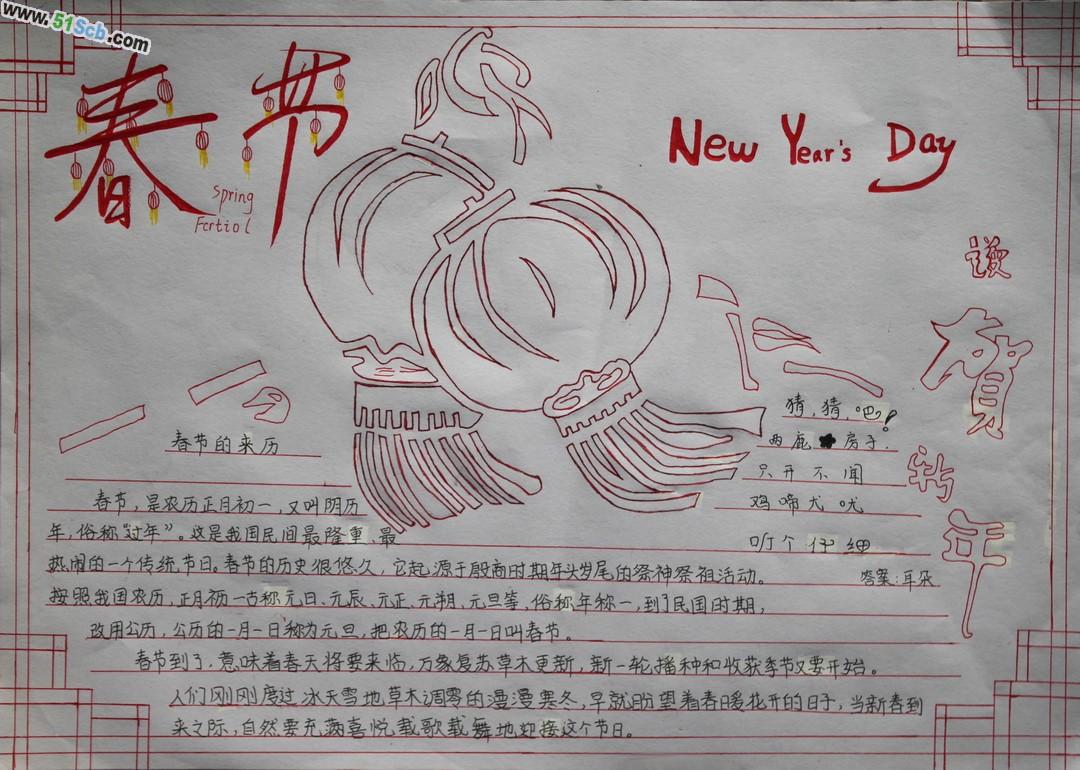 www.51Scb.com
春节
Spring
Fertiol
New Year's Day
谩
贺
新
年
春节的来历
春节，是农历正月初一，又叫阴历
年，俗称“过年”。这是我国民间最隆重、最
热闹的一个传统节日。春节的历史很悠久，它起源于殷商时期年头岁尾的祭神祭祖活动。
按照我国农历，正月初一古称元日、元辰、元正、元朔、元旦等，俗称年称一，到了民国时期，
改用公历，公历的一月一日称为元旦，把农历的一月一日叫春节。
春节到了，意味着春天将要来临，万象复苏草木更新，新一轮播种和收获季节又要开始。
人们刚刚度过冰天雪地草木凋零的漫漫寒冬，早就盼望着春暖花开的日子，当新春到
来之际，自然要充满喜悦载歌载舞地迎接这个节日。
猜，猜，吧！
两扇房子，
只开不闻
鸡啼犬吠
听个仔细
答案：耳朵